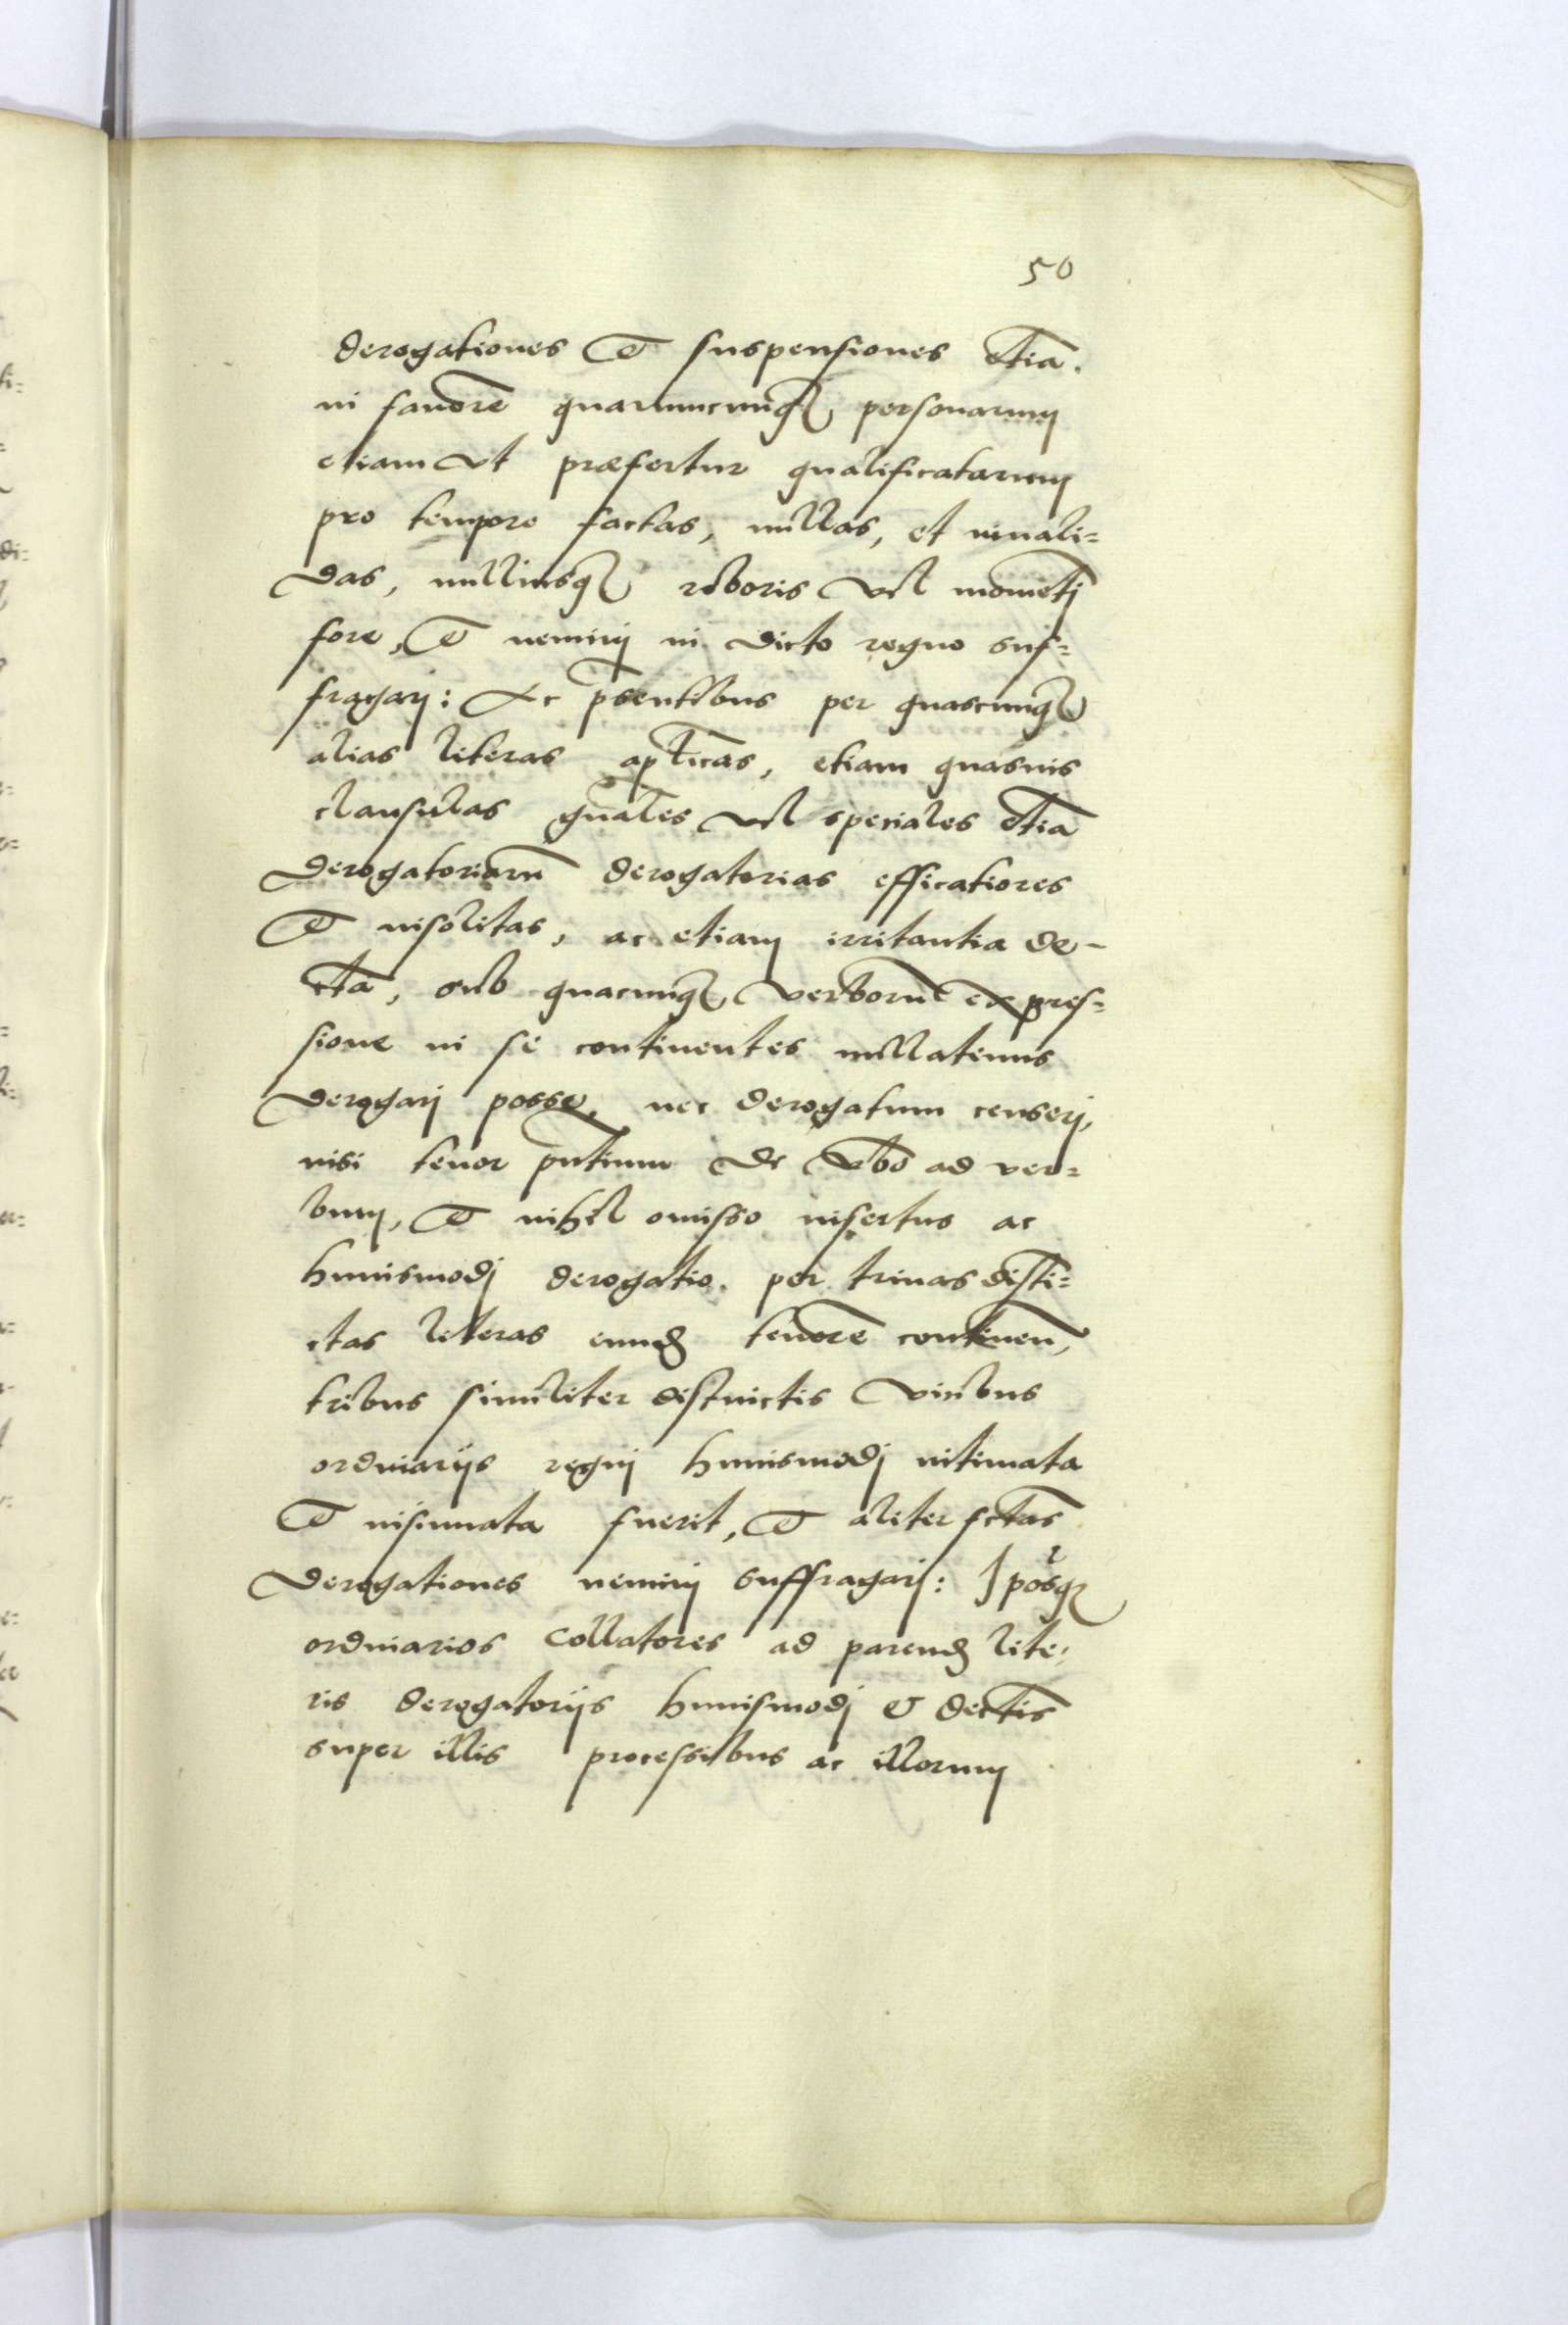 50
derogationes et suspensiones etiā.
in fauorē quarumcunq̃ personarum
etiam vt præfertur qualificatarum
pro tempore factas, nullas, et inuali=
das, nulliusq̃ roboris vel momēti
fore, et nemini in dicto regno suf=
fragari: Ac pñtibus per quascunq̃
alias literas aplicas, etiam quasuis
clausulas gñales vel speciales etiā
derogatoriarū derogatorias efficatiores
et insolitas, ac etiam irritantia de-
cta, sub quacunq̃ verborū expres=
sione in se continentes nullatenus
derogari posse, nec derogatum censeri,
nisi tenor pñtium de vbo ad ver=
bum, et nihil omisso insertus ac
huiusmodi derogatio. per trinas disti=
ctas literas eund tenorē continen,
tribus similiter distinctis vicibus
ordinarijs regni huiusmodi intimata
et insinuata fuerit, et aliter fctas
derogationes nemini suffragari: Iposq̃
ordinarios Collatores ad parend lite,
ris derogatorijs huiusmodi & dectis
super illis processibus ac illorum